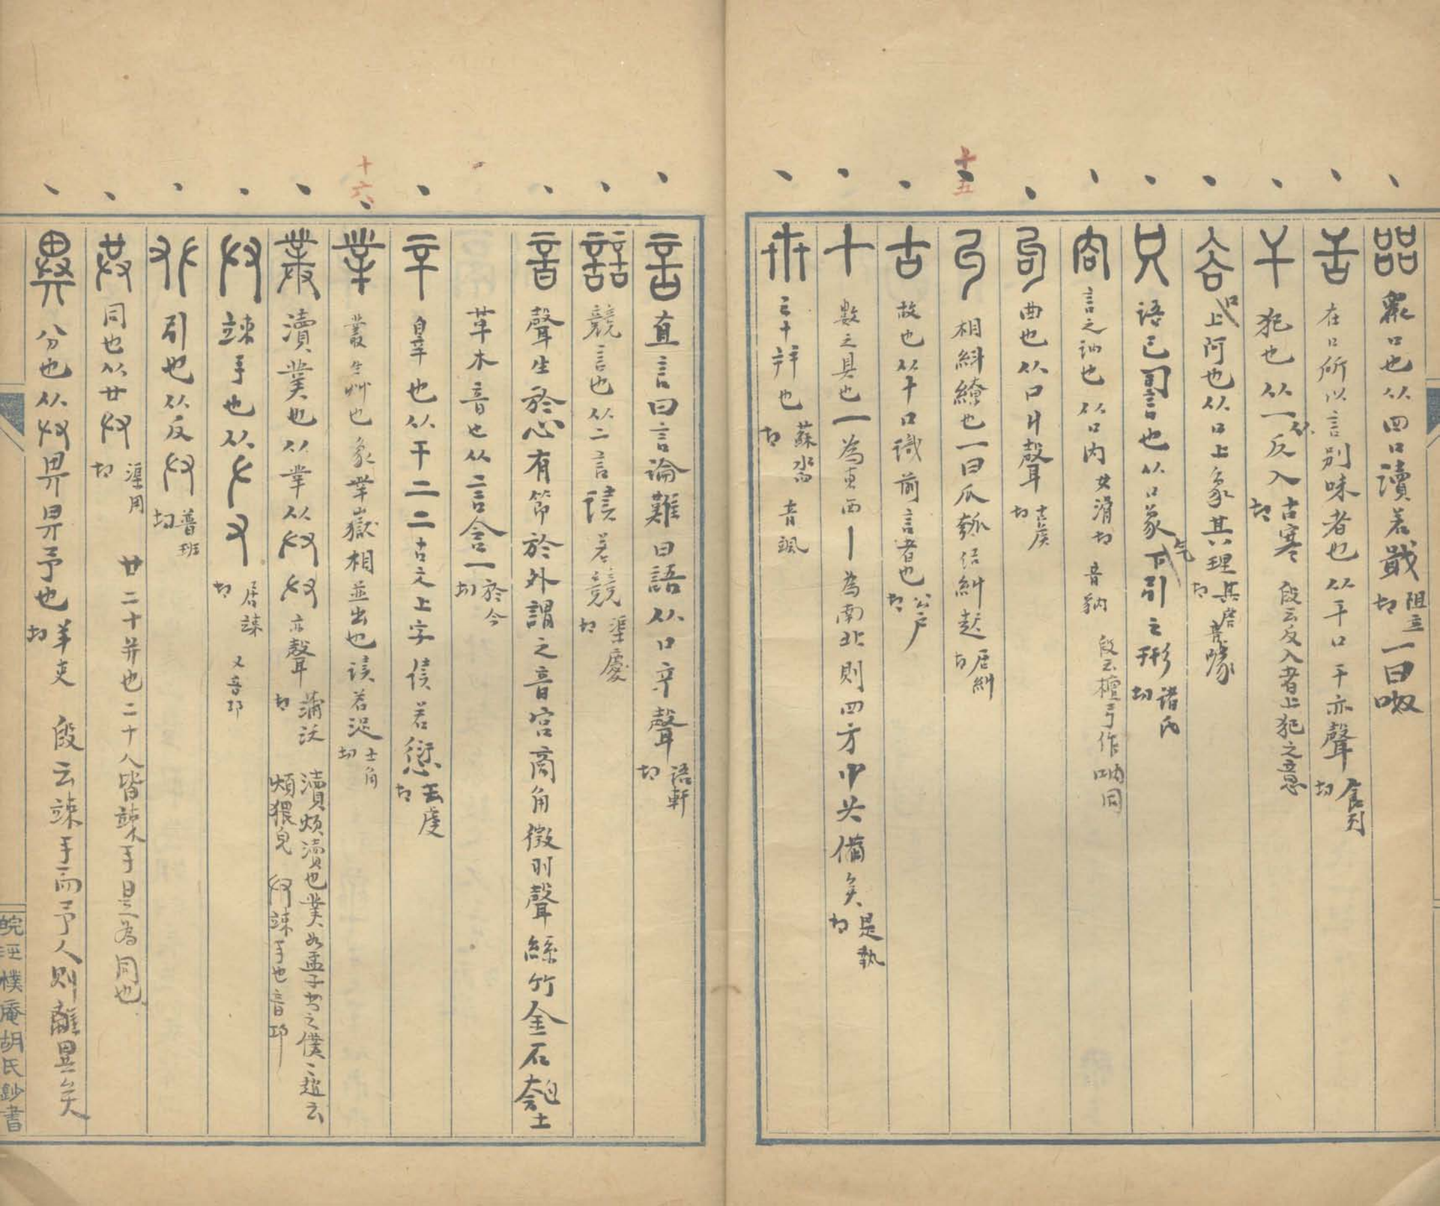 㗊 眾口也从四口讀若戢 阻立切 一曰呶
舌 在口所以言別味者也从干口干亦聲 食列切
干 犯也从一从反入 古寒切 段云反入者上犯之意
谷 口上阿也从口上象其理 其虐切 音噱
只 語已詞也从口象气下引之形 諸氏切
㕯 言之訥也从口内 女滑切 音豽 段云檀弓作吶同
句 曲也从口丩聲 古矦切
丩 相糾繚也一曰瓜瓠結丩起 居糾切
古 故也从十口識前言者也 公戶切
十 數之具也一為東西丨為南北則四方中央備矣 是執切
卅 三十并也 蘇沓切 音颯
十五
言 直言曰言論難曰語从口䇂聲 語軒切
誩 競言也从二言讀若競 渠慶切
音 聲生於心有節於外謂之音宮商角徵羽聲絲竹金石匏土
革木音也从言含一 於今切
䇂 辠也从干二二古文上字讀若愆 去虔切
丵 叢生艸也象丵嶽相並出也讀若浞 士角切
菐 瀆菐也从丵从廾廾亦聲 蒲沃切 瀆煩瀆也菐如孟子書之僕僕趙云煩猥皃 廾竦手也音邛
廾 竦手也从𠂇又 居竦切 又音邛
𠬜 引也从反廾 普班切
共 同也从廿廾 渠用切 廿二十并也二十人皆竦手是為同也
異 分也从廾畀畀予也 羊吏切 段云竦手而予人則離異矣
十六
皖涇樸庵胡氏鈔書